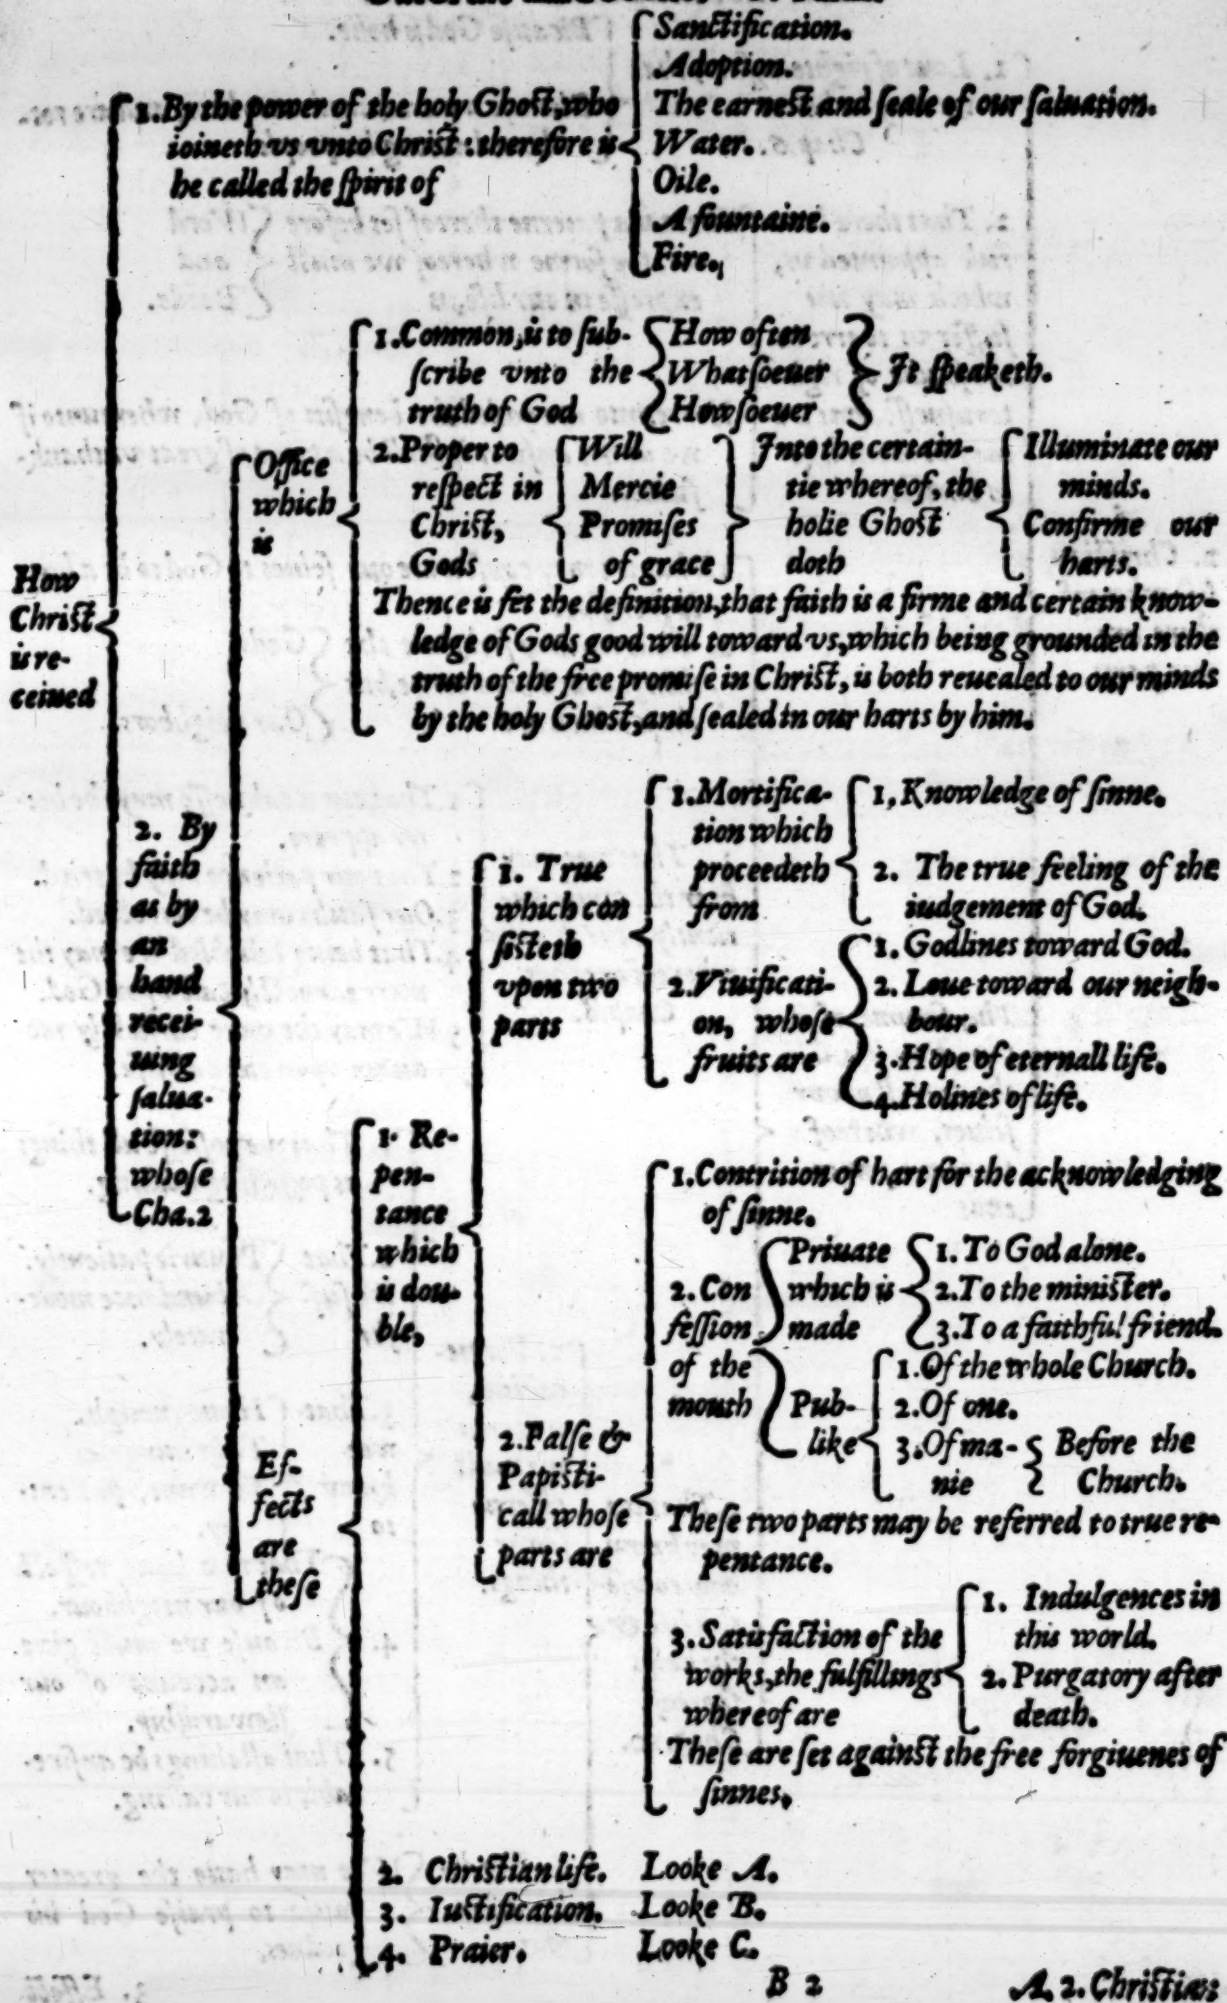 Sanctification.
Adoption.
The earnest and ſeale of our ſaluation.
Water.
Oile.
A fountaine.
Fire.
1. By the power of the holy Ghoſt, who
ioineth vs vnto Chriſt: therefore is
he called the ſpirit of
How
Chriſt
is re-
ceiued
2. By
faith
as by
an
hand
recei-
uing
ſalua-
tion:
whoſe
Cha.2
Office
which
is
1. Common, is to ſub-
ſcribe vnto the
truth of God
How often
Whatſoeuer
Howſoeuer
It ſpeaketh.
2. Proper to
reſpect in
Chriſt,
Gods
Will
Mercie
Promiſes
of grace
Into the certain-
tie whereof, the
holie Ghoſt
doth
Illuminate our
minds.
Confirme our
harts.
Thence is fet the definition, that faith is a firme and certain know-
ledge of Gods good will toward vs, which being grounded in the
truth of the free promiſe in Chriſt, is both reuealed to our minds
by the holy Ghoſt, and ſealed in our harts by him.
Ef-
fects
are
theſe
1. Re-
pen-
tance
which
is dou-
ble,
1. True
which con
ſiſteth
vpon two
parts
1. Mortifica-
tion which
proceedeth
from
1, Knowledge of ſinne.
2. The true feeling of the
iudgement of God.
2. Viuificati-
on, whoſe
fruits are
1. Godlines toward God.
2. Loue toward our neigh-
bour.
3. Hope of eternall life.
4. Holines of life.
2. Falſe &
Papiſti-
call whoſe
parts are
1. Contrition of hart for the acknowledging
of ſinne.
2. Con
feſſion
of the
mouth
Priuate
which is
made
1. To God alone.
2. To the miniſter.
3. To a faithful friend.
Pub-
like
1. Of the whole Church.
2. Of one.
3. Of ma-
nie
Before the
Church.
Theſe two parts may be referred to true re-
pentance.
3. Satisfaction of the
works, the fulfillings
whereof are
1. Indulgences in
this world.
2. Purgatory after
death.
Theſe are ſet againſt the free forgiuenes of
ſinnes.
2. Chriſtian life. Looke A.
3. Iuſtification. Looke B.
4. Praier. Looke C.
B 2
A. 2. Chriſtian